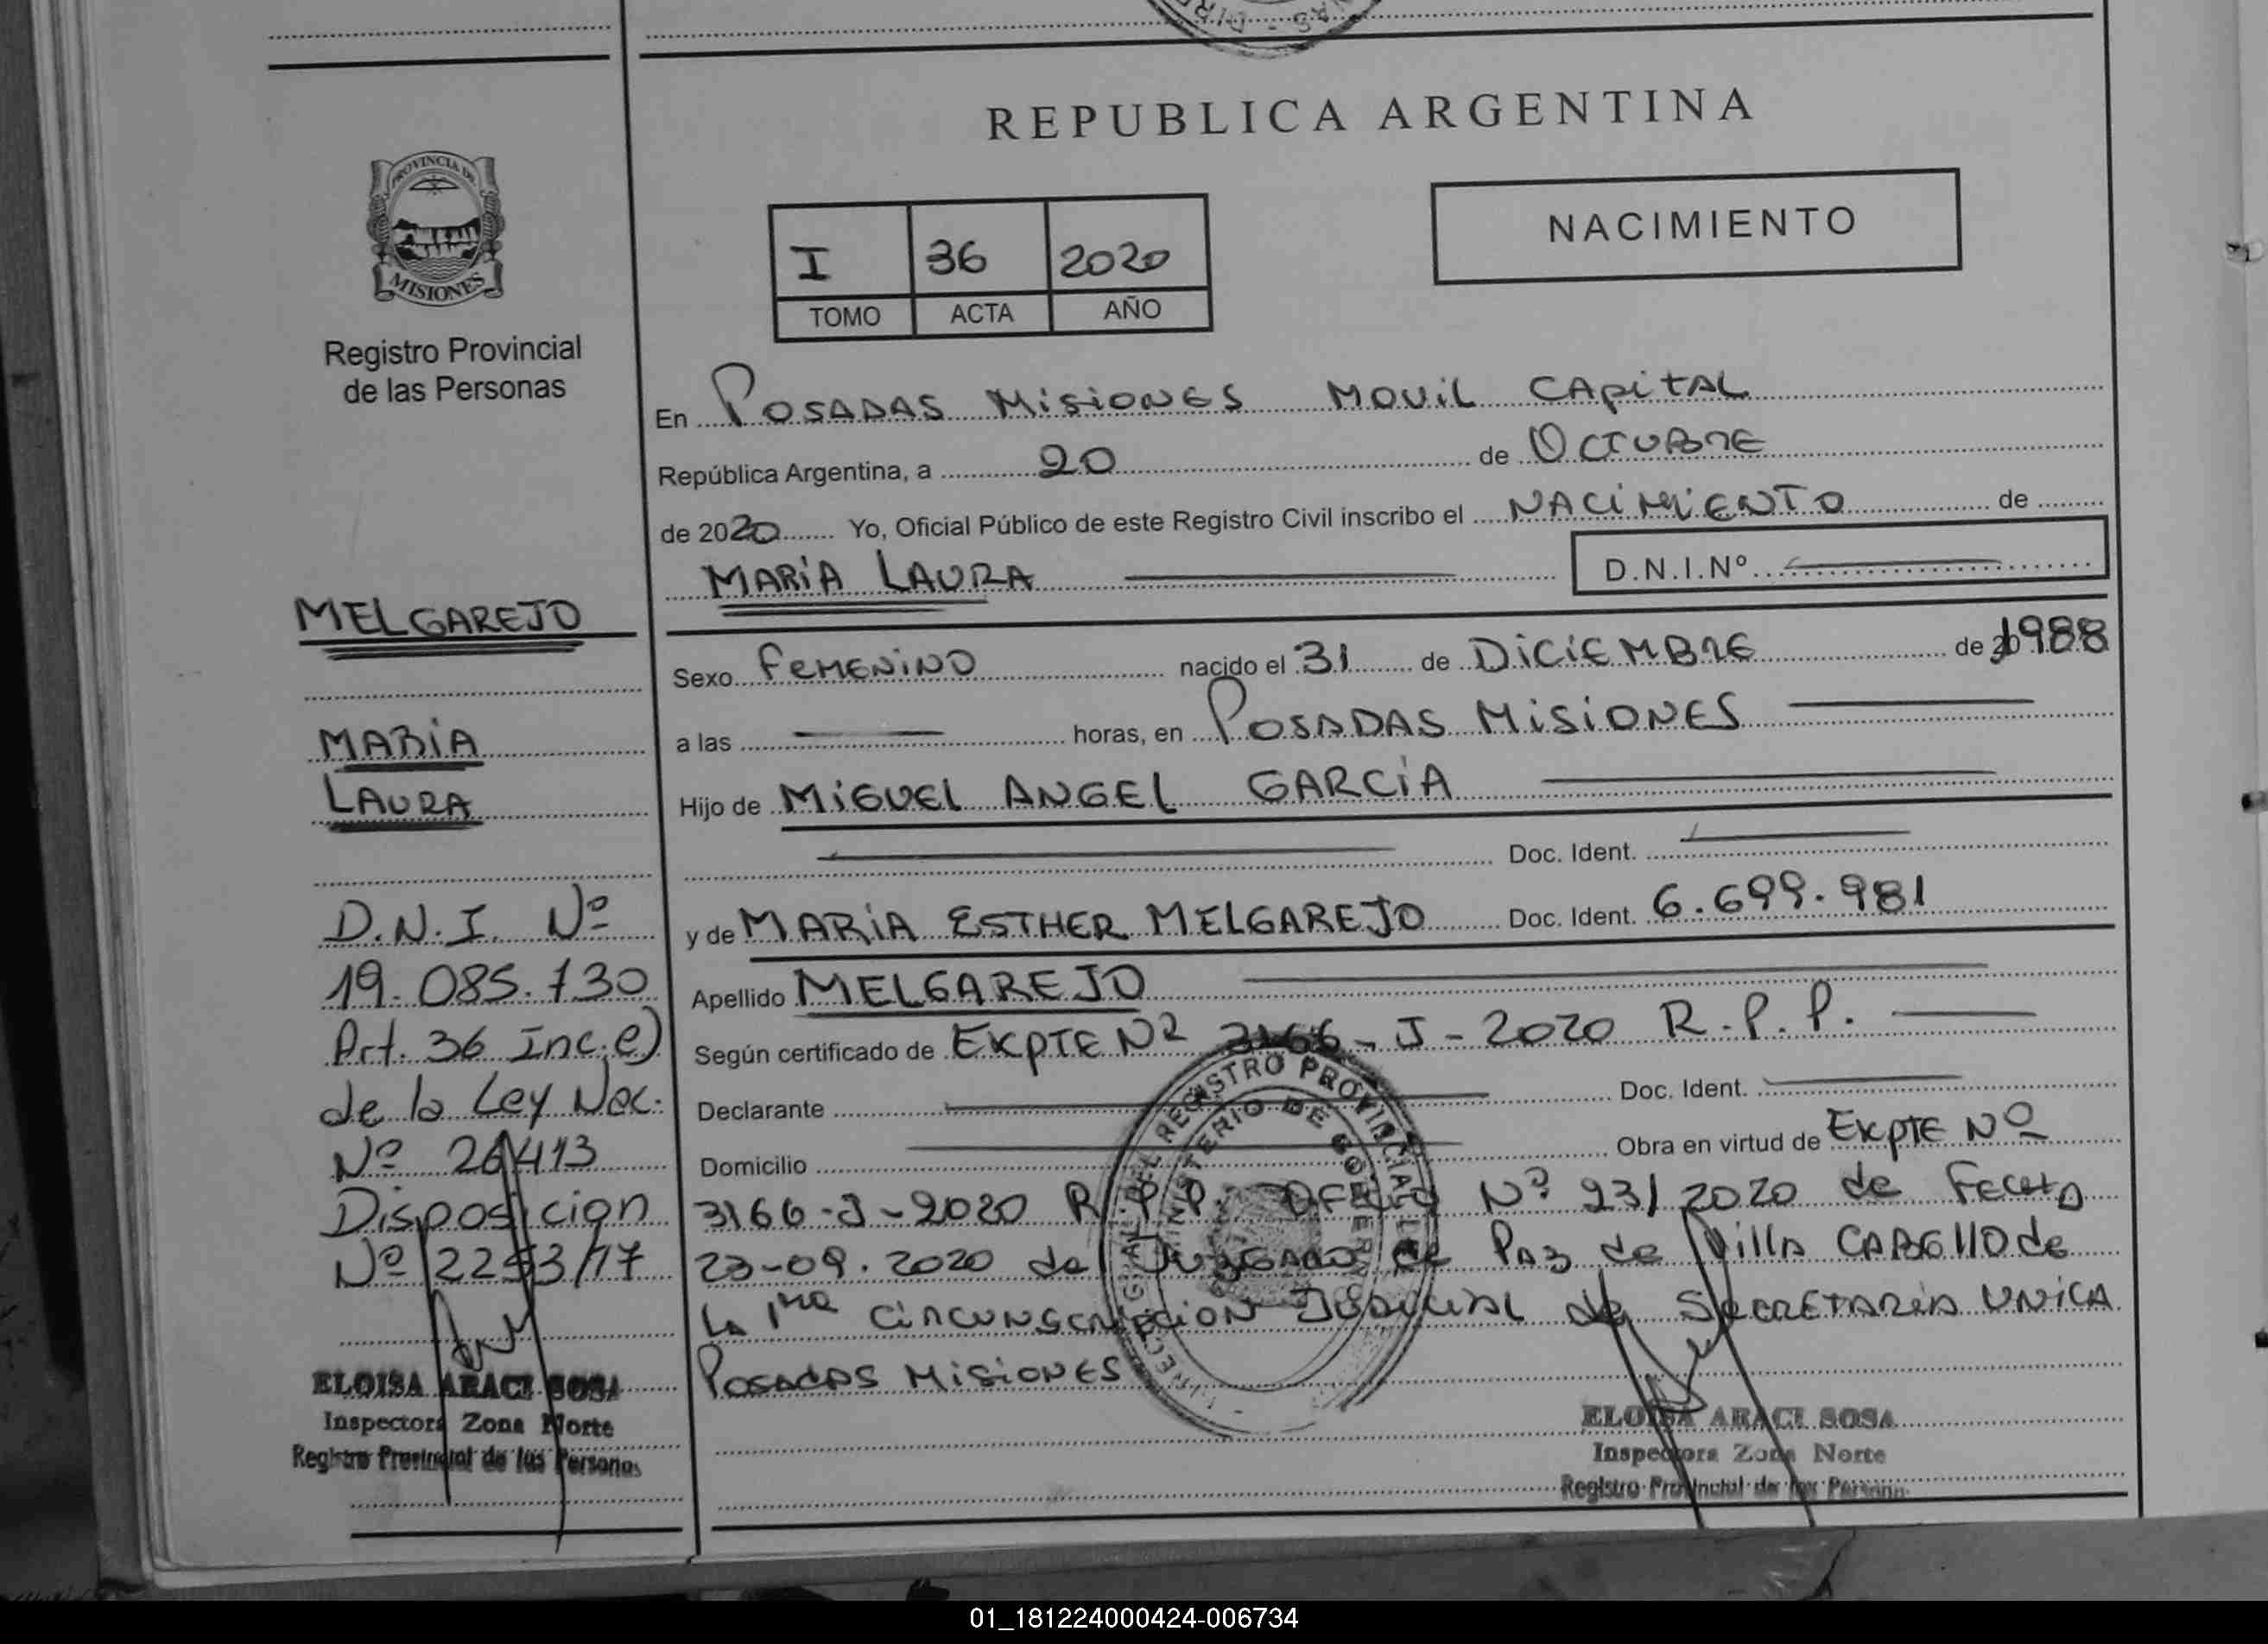 REPUBLICA ARGENTINA
PROVINCIA DE
MISIONES
Registro Provincial
de las Personas
NACIMIENTO
I 36 2020
TOMO ACTA AÑO
En POSADAS MISIONES MOVIL CAPITAL
República Argentina, a 20 de OCTUBRE
de 2020 Yo, Oficial Público de este Registro Civil inscribo el NACIMIENTO de
MARIA LAURA D.N.I.Nº
Sexo FEMENINO nacido el 31 de DICIEMBRE de 1988
a las horas, en POSADAS MISIONES
Hijo de MIGUEL ANGEL GARCIA
Doc. Ident.
y de MARIA ESTHER MELGAREJO Doc. Ident. 6.699.981
Apellido MELGAREJO
Según certificado de EXPTE Nº 3166-J-2020 R.P.P.
Declarante Doc. Ident.
Domicilio Obra en virtud de EXPTE Nº
3166-J-2020 R.P.P. OFICIO Nº 231/2020 de FECHA
23-09.2020 del JUZGADO de PAZ de Villa CABELLO de
LA 1ra CIRCUNSCRIPCION JUDICIAL de SECRETARIA UNICA
POSADAS MISIONES
MELGAREJO
MARIA
LAURA
D.N.I. Nº
19.085.730
Art. 36 Inc.e)
de la Ley Nac.
Nº 26413
Disposicion
Nº 2253/17
ELOISA ARACI SOSA
Inspectora Zona Norte
Registro Provincial de las Personas
ELOISA ARACI SOSA
Inspectora Zona Norte
Registro Provincial de las Personas
REGISTRO PROVINCIAL
MINISTERIO DE GOBIERNO
01_181224000424-006734